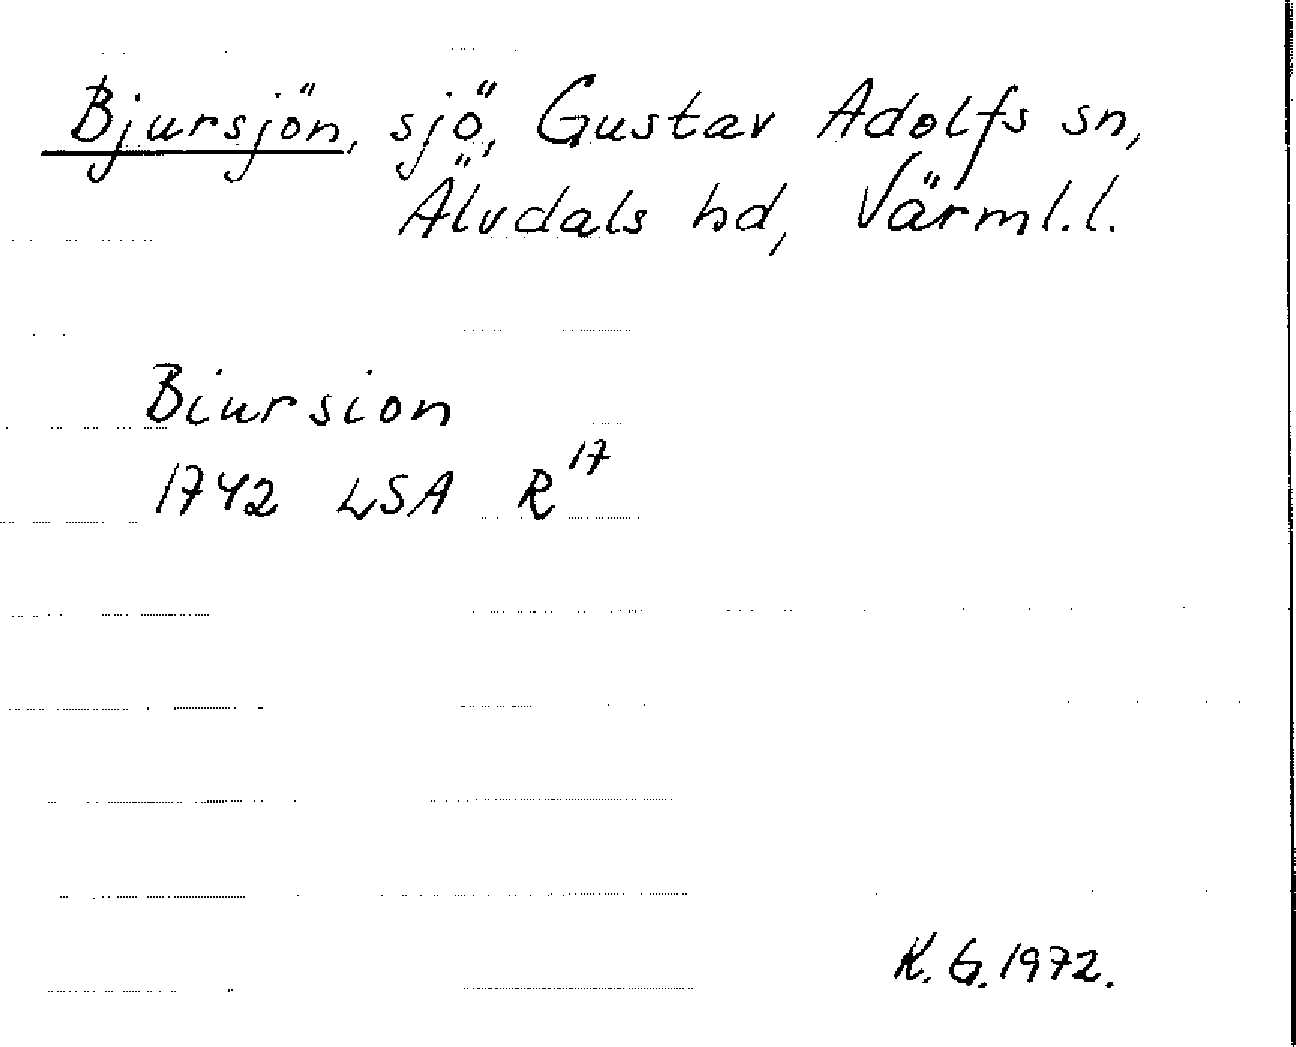 Bjursjön, sjö, Gustav Adolfs sn,
Älvdals hd, Värml.l.
Biursion
1742 LSA R 17
K. G. 1972.